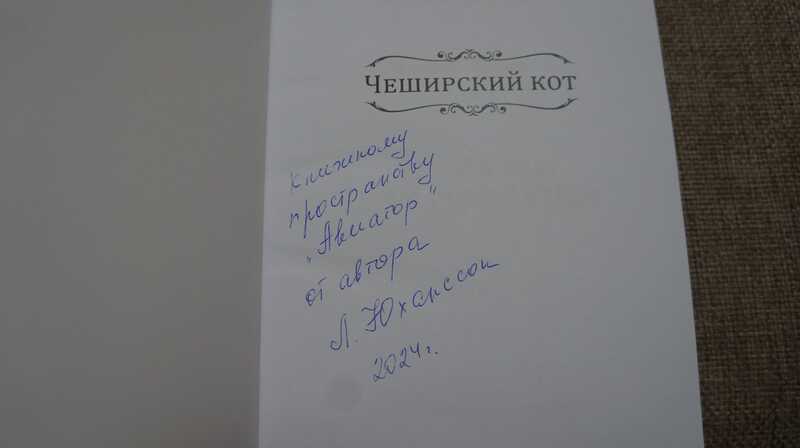 Чеширский кот
Книжному
пространству
"Авиатор"
от автора
Л. Юханссон
2024 г.